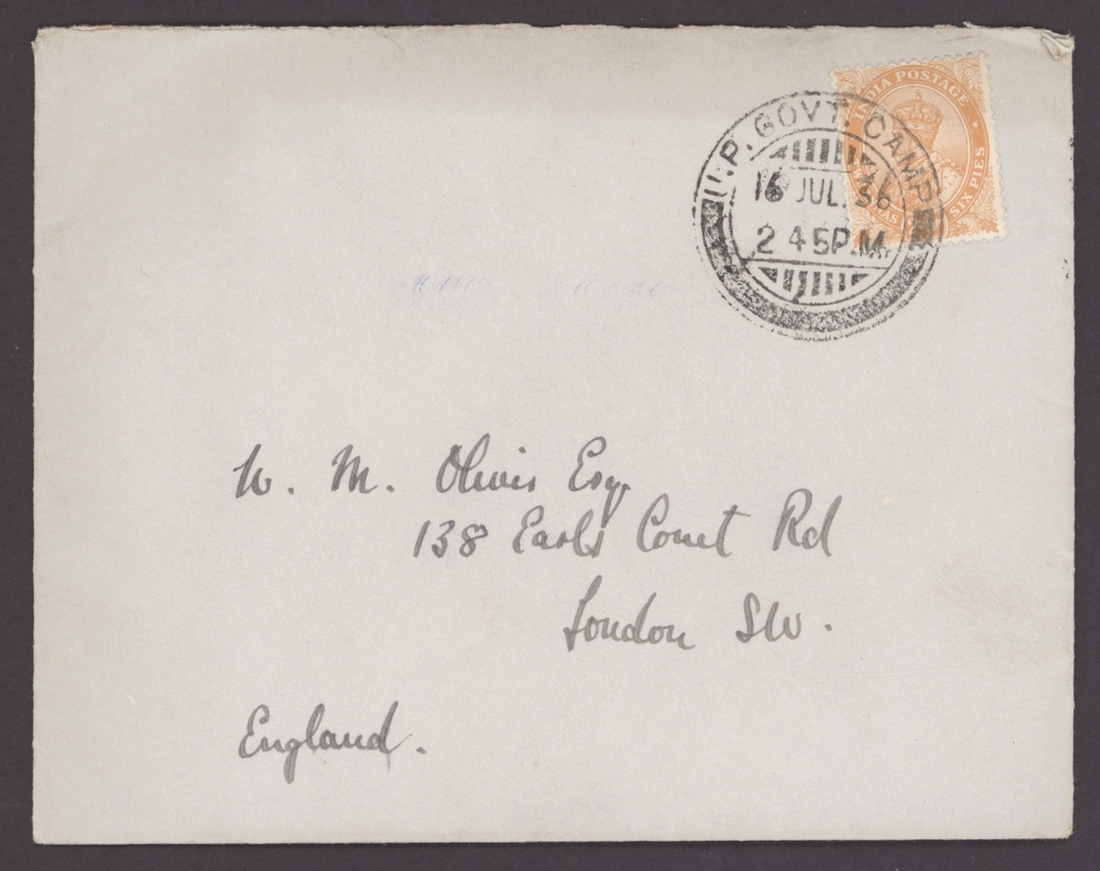 INDIA POSTAGE
SIX PIES
U.P. GOVT. CAMP
16 JUL. 36
2 45P.M.
W. M. Olivis Esq.
138 Earls Court Rd
London SW.
England.